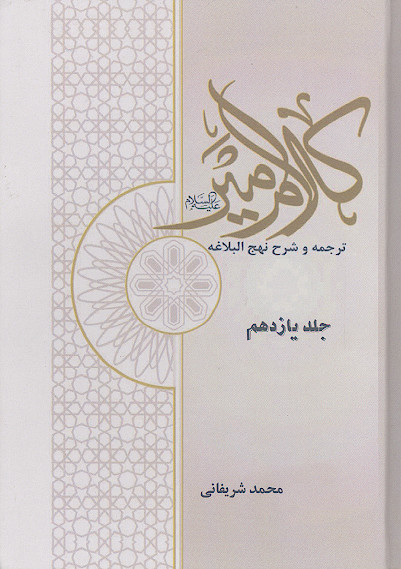 کلام امیر
علیه السلام
ترجمه و شرح نهج البلاغه
جلد یازدهم
محمد شریفانی